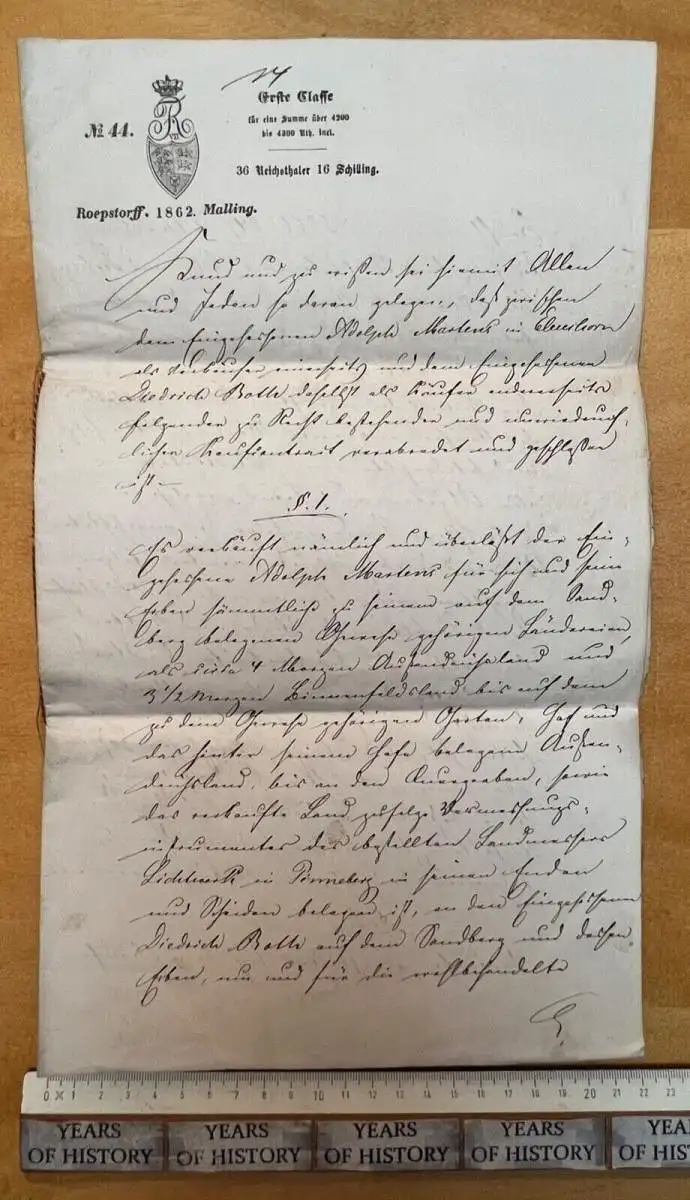 14
№ 44.
Erste Classe
für eine Summe über 4200
bis 4300 Rth. incl.
36 Reichsthaler 16 Schilling.
R VII
Roepstorff. 1862. Malling.
Kund und zu wissen sei hiemit Allen
und Jeden so daran gelegen, daß zwischen
dem Eingesessenen Adolph Martens in Elmshorn
als Verkäufer einerseits und dem Eingesessenen
Diedrich Bolte daselbst als Käufer andererseits
folgender zu Recht bestehender und unwiederruf-
licher Kaufcontract verabredet und geschlossen
ist.
§. 1.
Es verkauft nämlich und überläßt der Ein-
gesessene Adolph Martens für sich und seine
Erben sämmtliche zu seinem auf dem Sand-
berg belegenen Gewese gehörigen Ländereien,
als circa 4 Morgen Außendeichsland und
3 1/2 Morgen Binnenfeldsland bis auf den
zu dem Gewese gehörigen Garten, Hof und
das hinter seinem Hofe belegene Außen-
deichsland, bis an den, sowie
das verkaufte Land zufolge Vermessungs-
instrumentes des bestellten Landmessers
Lichtwerk in Pinneberg in seinen Enden
und Scheiden belegen ist, an den Eingesessenen
Diedrich Bolte auf dem Sandberg und dessen
Erben, um und für die wohlbehandelte
0 1 2 3 4 5 6 7 8 9 10 11 12 13 14 15 16 17 18 19 20 21 22 23
YEARS OF HISTORY
YEARS OF HISTORY
YEARS OF HISTORY
YEARS OF HISTORY
YEA
OF HIS